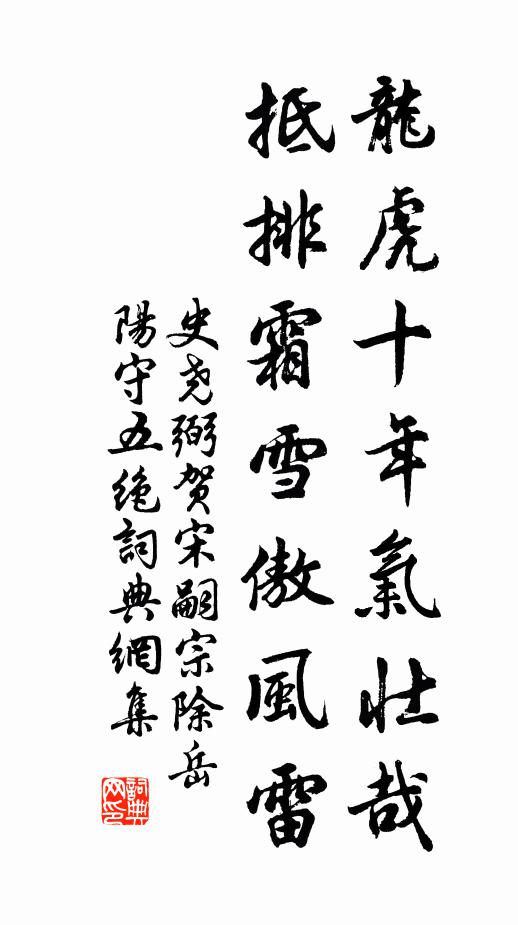 龍虎十年氣壯哉
抵排霜雪傲風雷
史尧弼贺宋嗣宗除岳
陽守五绝詞典網集
詞典
网印